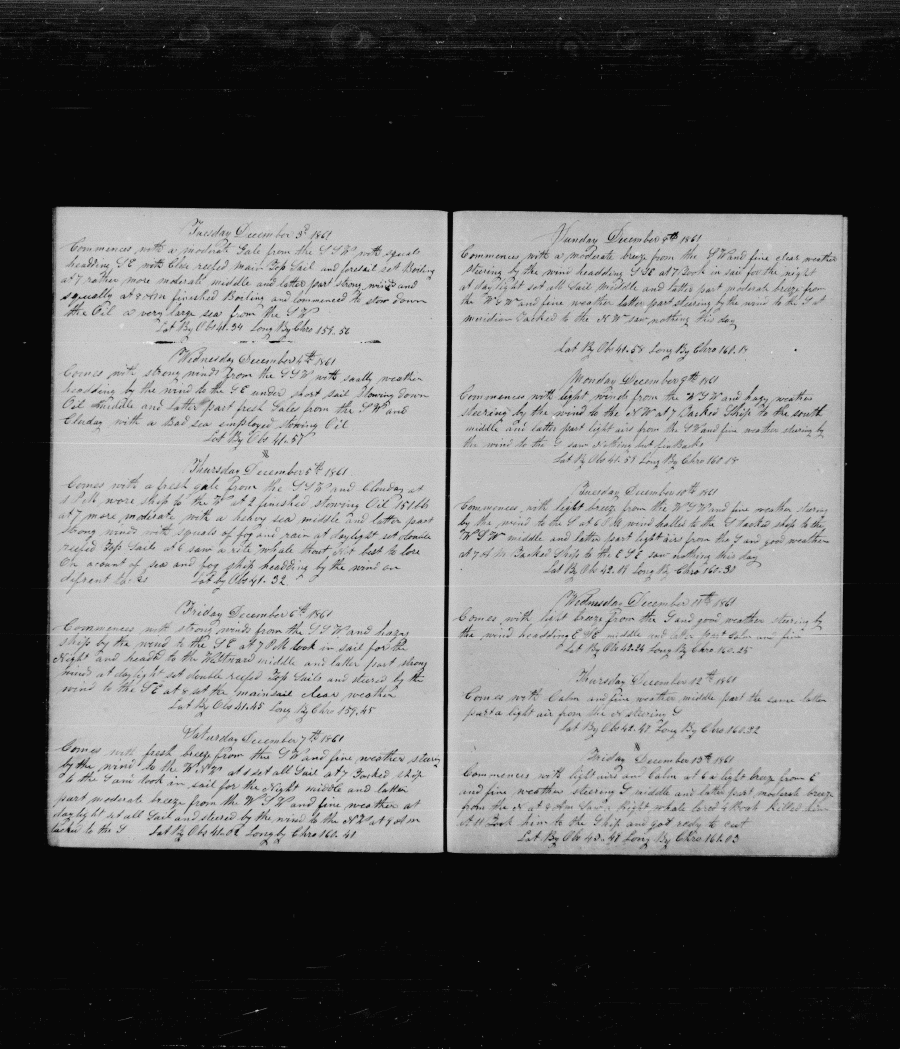 Tuesday December 3d 1861
Commences with a moderate Gale from the S S W with squals
heading S E with Close reefed Main Top Sail and foresail set Boiling
at 7 rather more moderate middle and latter part strong winds and
squally at 8 finished Boiling and commenced to stow down
the Oil a very large sea from the S W
Lat By Obs 41.34 Long By Chro 158.56
Wednesday December 4th 1861
Comes with strong winds from the S S W with squally weather
headding by the wind to the S E under short sail Stowing down
Oil Middle and latter part fresh Gales from the S W and
Clouday with a Bad sea employed stowing Oil
Lat By Obs 41.57
"
Thursday December 5th 1861
Comes with a fresh gale from the S S W and Clouday at
1 P M wore ship to the W at 2 finished stowing Oil 151 bbs
at 7 more moderate with a heavy sea middle and latter part
strong winds with squals of fog and rain at daylight set double
reefed Top Sails at 6 saw a rite whale thout Not best to lore
On acount of sea and fog ship headding by the wind on
difrent tacks Lat by Obs 41.32
Friday December 6th 1861
Commences with strong winds from the S S W and hazey
ship by the wind to the S E at 7 P M took in sail for the
Night and headed to the Westward middle and latter part strong
wind at daylight set double reefed Top Sails and steered by the
wind to the S E at 9 set the mainsail clear weather
Lat By Obs 41.45 Long By Chro 159.45
Saturday December 7th 1861
Comes with fresh breeze from the S W and fine weather steering
by the wind to the W N W at 1 set all Sail at 7 Tacked ship
to the S and took in sail for the Night middle and latter
part moderate breeze from the W S W and fine weather at
daylight set all Sail and steered by the wind to the N W at 9 A m
tacked to the S Lat By Obs 41.02 Long by Chro 161.40
Sunday December 8th 1861
Commences with a moderate breeze from the S W and fine clear weather
steering by the wind headding S S E at 7 Took in sail for the night
at daylight set all Sail Middle and latter part moderate breeze from
the W S W and fine weather latter part steering by the wind to the S at
meridian Tacked to the N W saw nothing this day
Lat By Obs 41.58 Long By Chro 160.19
Monday December 9th 1861
Commences with light winds from the W S W and hazy weather
steering by the wind to the N W at 7 Tacked Ship to the south
middle and latter part light airs from the S W and fine weather stearing by
the wind to the S saw Nothing but finBacks
Lat By Obs 41.58 Long By Chro 160.18
Tuesday December 10th 1861
Commences with light breeze from the W S W and fine weather stering
by the wind to the S at 6 P M wind hailed to the S Tacked ship to the
W S W middle and latter part light airs from the S and good weather
at 7 A M Tacked Ship to the E S E saw nothing this day
Lat By Obs 42.19 Long By Chro 160.30
Wednesday December 11th 1861
Comes with light breeze from the S and good weather stearing by
the wind headding middle and latter part Calm and fine
Lat By Obs 42.24 Long By Chro 160.25
Thursday December 12th 1861
Comes with Calm and fine weather middle part the same latter
part a light air from the N steering S
Lat By Obs 42.47 Long By Chro 160.32
"
Friday December 13th 1861
Commences with light airs and Calm at 6 a light breeze from E
and fine weather steering S middle and latter part moderate breeze
from the N at 9 A m Saw a Right whale lored & Took Killed him
At 11 Took him to the Ship and got ready to cut
Lat By Obs 43.48 Long By Chro 161.03